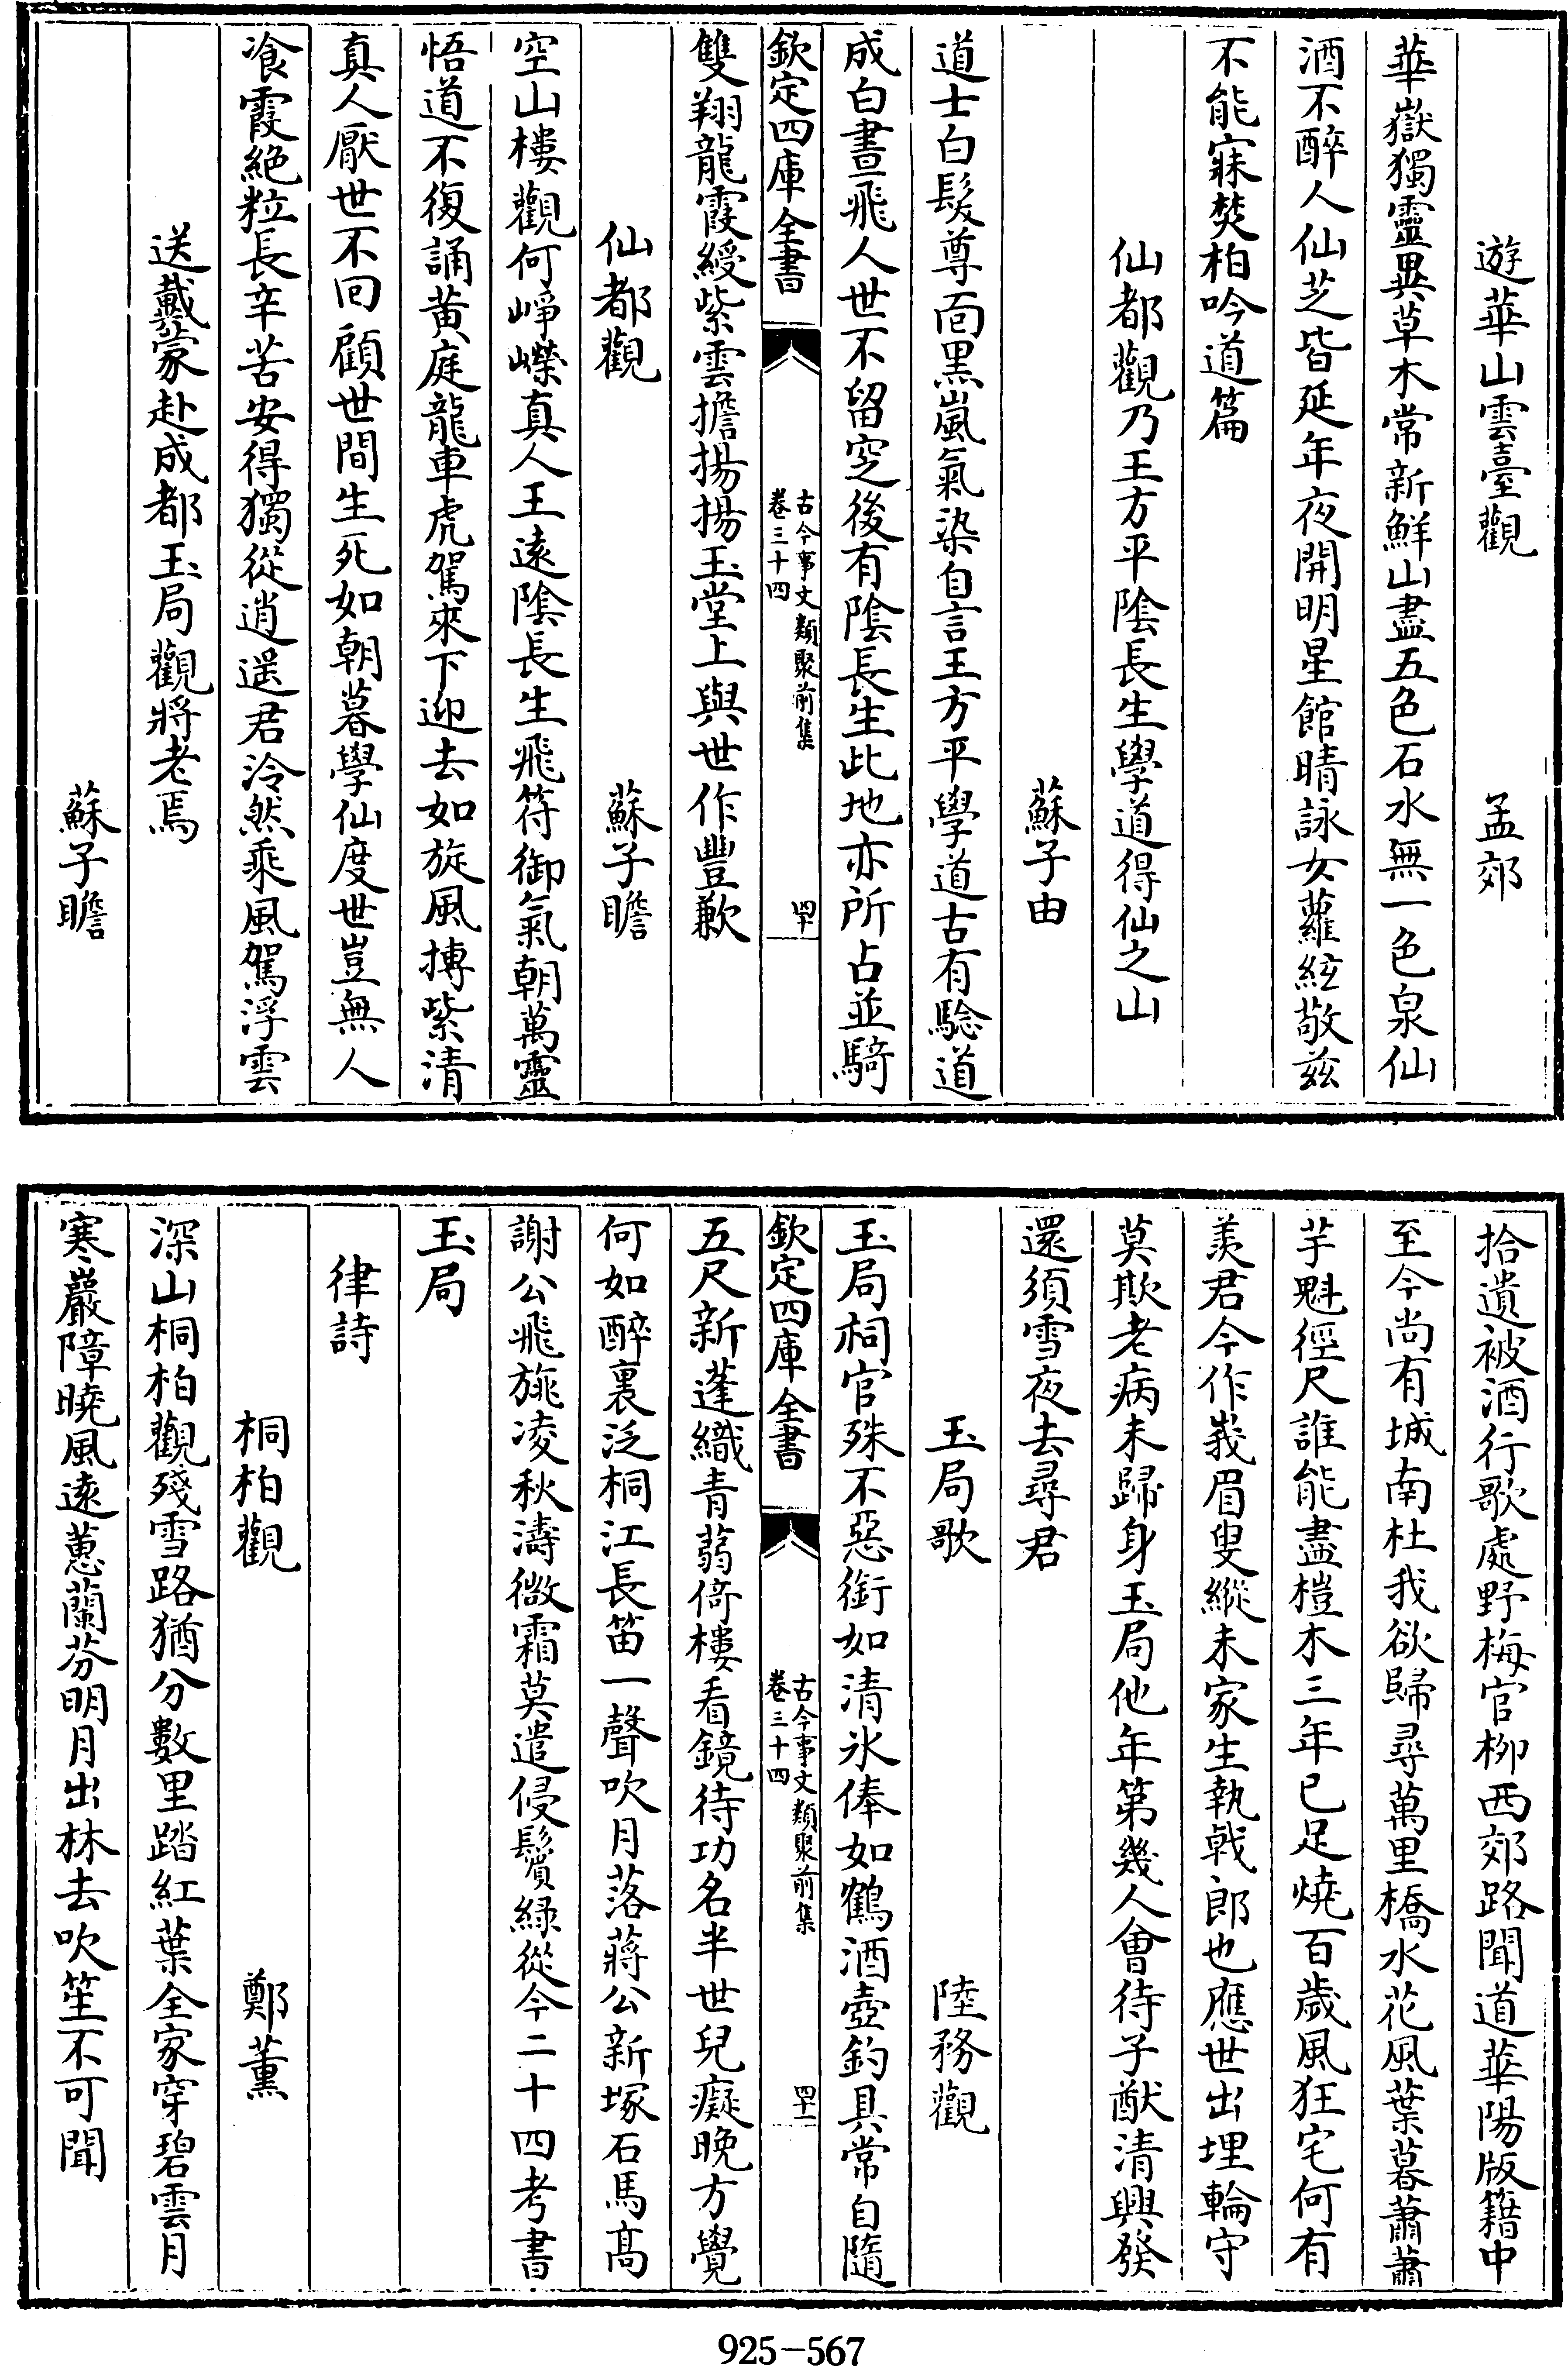 遊華山雲臺觀　孟郊
華嶽獨靈異草木常新鮮山盡五色石水無一色泉仙
酒不醉人仙芝皆延年夜開明星館時詠女蘿絃敬兹
不能寐焚柏吟道篇
仙都觀乃王方平隂長生學道得仙之山
蘇子由
道士白髮尊面黒嵐氣染自言王方平學道古有驗道
成白晝飛人世不留窆後有隂長生此地亦所占並騎
欽定四庫全書
古今事文類聚前集
卷三十四
四十
雙翔龍霞綬紫雲擔揚揚玉堂上與世作豐歉
仙都觀　蘇子瞻
空山樓觀何崢嶸真人王逺隂長生飛符御氣朝萬靈
悟道不復誦黄庭龍車虎駕來下迎去如旋風摶紫清
真人厭世不囘顧世間生死如朝暮學仙度世豈無人
飡霞絶粒長辛苦安得獨從逍遥君泠然乘風駕浮雲
送戴蒙赴成都玉局觀將老焉
蘇子瞻
拾遺被酒行歌處野梅官柳西郊路聞道華陽版籍中
至今尚有城南杜我欲歸尋萬里橋水花風葉暮蕭蕭
芋魁徑尺誰能盡榿木三年已足燒百歲風狂宅何有
羨君今作峩眉叟縱未家生執戟郎也應世出埋輪守
莫欺老病未歸身玉局他年第幾人會待子猷清興發
還須雪夜去尋君
玉局歌　陸務觀
玉局祠官殊不惡銜如清氷俸如鶴酒壺釣具常自隨
欽定四庫全書
古今事文類聚前集
卷三十四
四十一
五尺新蓬織青蒻倚樓看鏡待功名半世兒癡晚方覺
何如醉裏泛桐江長笛一聲吹月落蔣公新塚石馬髙
謝公飛旐凌秋濤微霜莫遣侵鬢緑從今二十四考書
玉局
律詩
桐柏觀　鄭薰
深山桐柏觀殘雪路猶分數里踏紅葉全家穿碧雲月
寒巖障曉風逺蕙蘭芬明月出林去吹笙不可聞
925-567